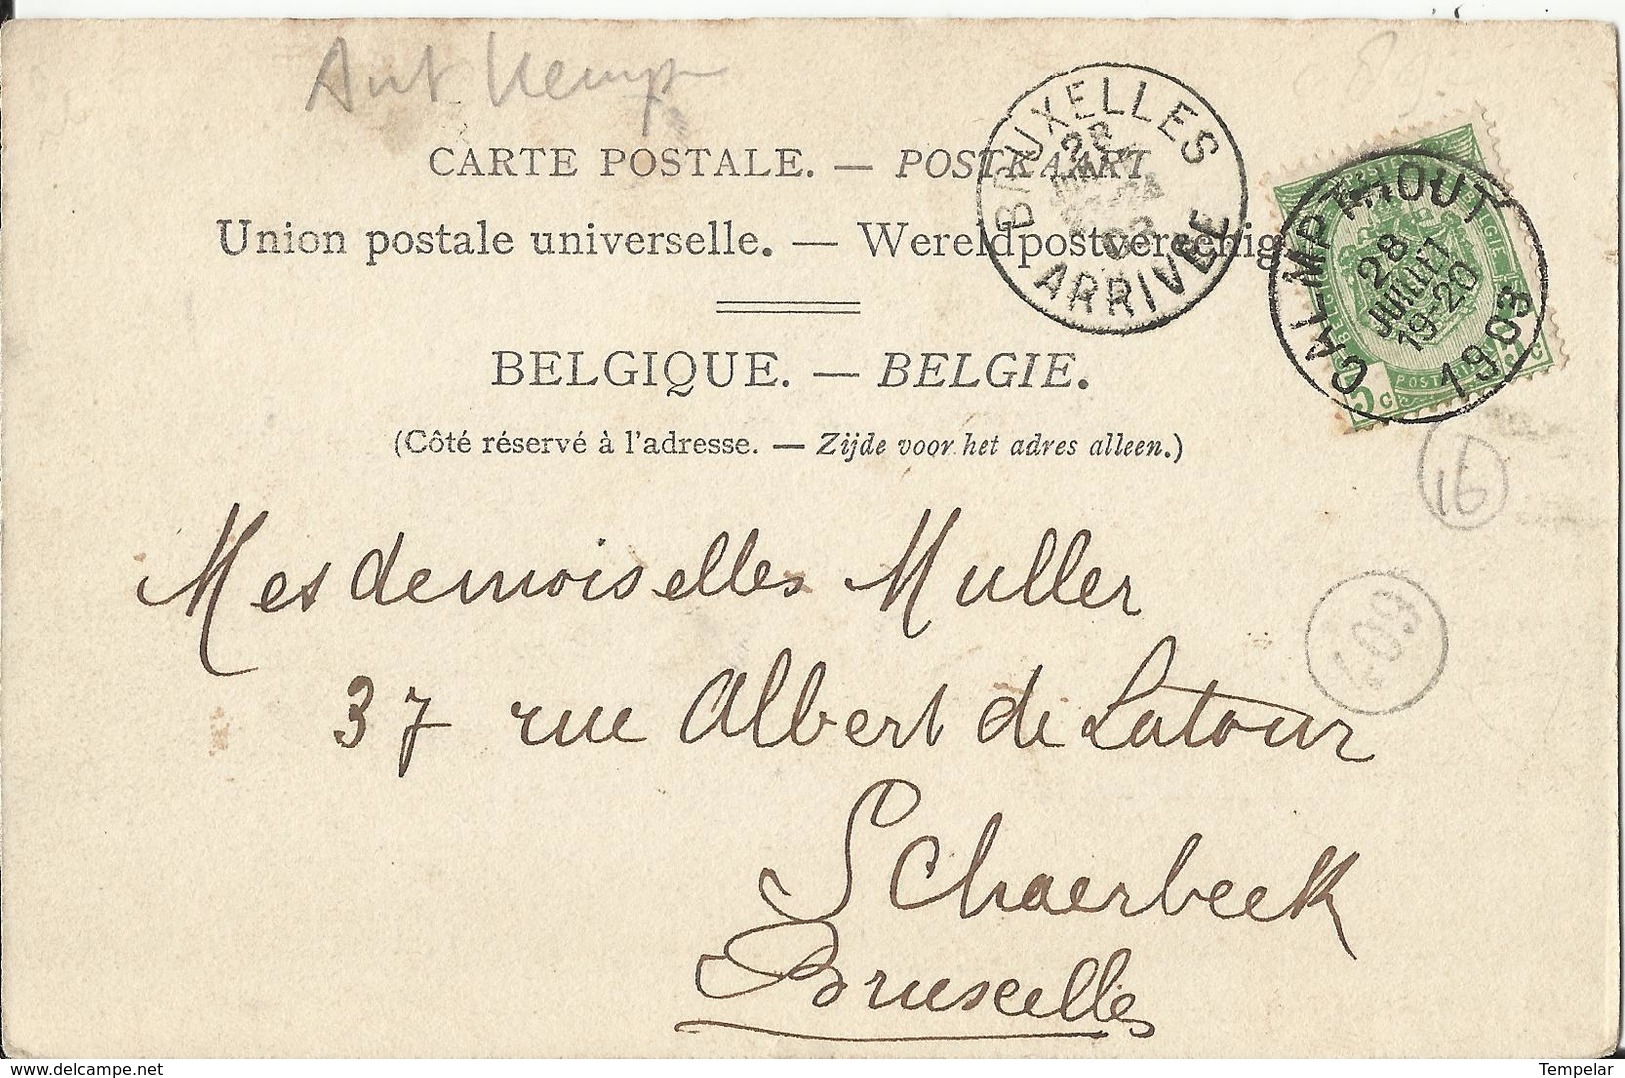 Ant Kemp
CARTE POSTALE. — POSTKAART
Union postale universelle. — Wereldpostvereenig
BELGIQUE. — BELGIE.
(Côté réservé à l'adresse. — Zijde voor het adres alleen.)
BRUXELLES
28
03
ARRIVEE
CALMPTHOUT
28
JUILLET
19-20
1903
5c
5c
16
Mesdemoiselles Muller
37 rue Albert de Latour
Schaerbeek
Bruxelles
delcampe.net
Tempelar